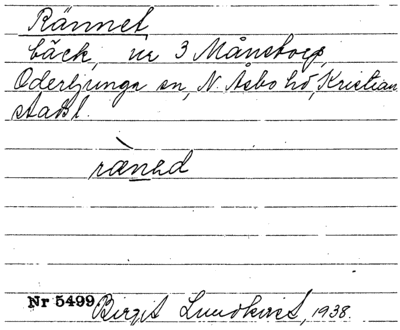 Rännet
bäck, nr 3 Månstorp,
Oderljunga sn, N. Åsbo hd, Kristian
stads l.
ræ̀ned
Nr 5499. Birgit Lundkvist, 1938.